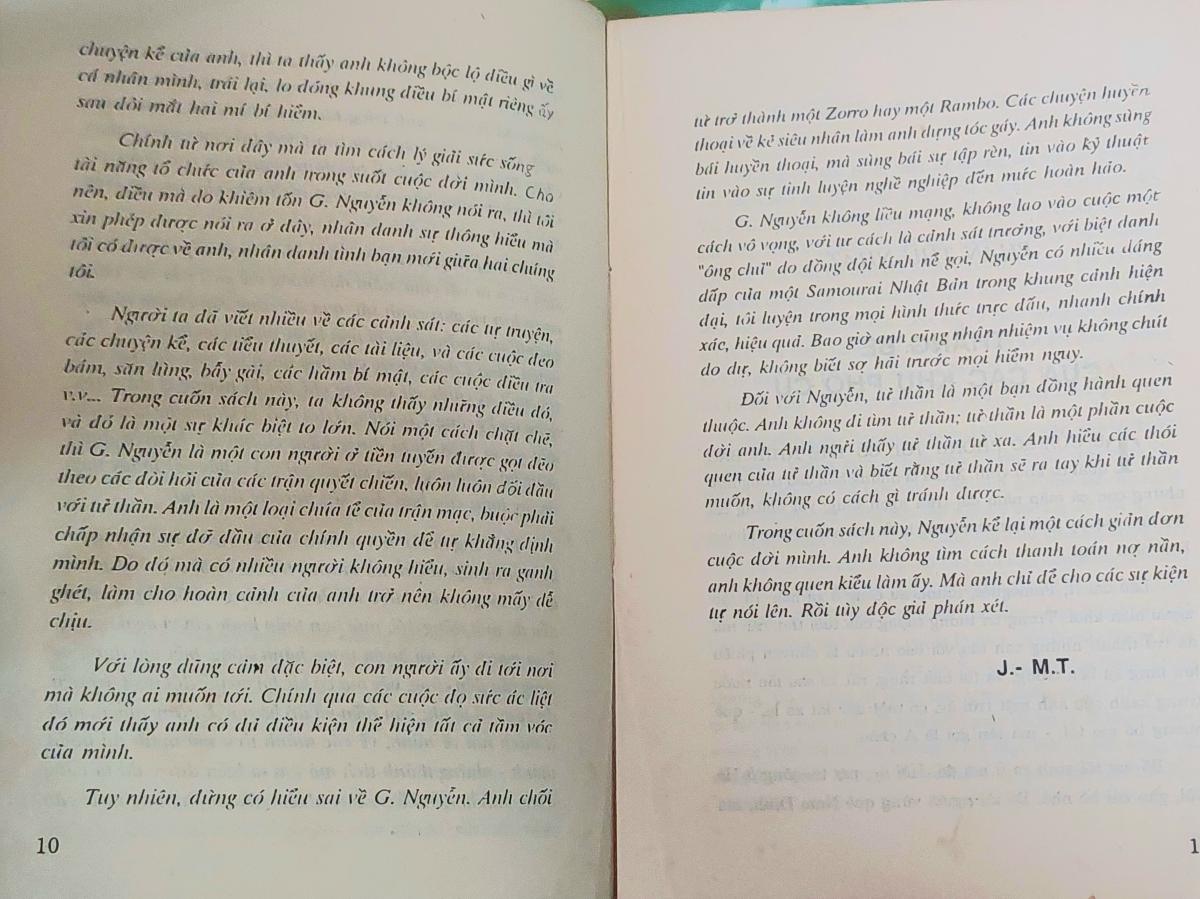 chuyện kể của anh, thì ta thấy anh không bộc lộ điều gì về
cá nhân mình, trái lại, lo đóng khung điều bí mật riêng ấy
sau đôi mắt hai mí bí hiểm.
Chính từ nơi đây mà ta tìm cách lý giải sức sống
tài năng tổ chức của anh trong suốt cuộc đời mình. Cho
nên, điều mà do khiêm tốn G. Nguyễn không nói ra, thì tôi
xin phép được nói ra ở đây, nhân danh sự thông hiểu mà
tôi có được về anh, nhân danh tình bạn mới giữa hai chúng
tôi.
Người ta đã viết nhiều về các cảnh sát: các tự truyện,
các chuyện kể, các tiểu thuyết, các tài liệu, và các cuộc đeo
bám, săn lùng, bẫy gài, các hầm bí mật, các cuộc điều tra
v.v... Trong cuốn sách này, ta không thấy những điều đó,
và đó là một sự khác biệt to lớn. Nói một cách chặt chẽ,
thì G. Nguyễn là một con người ở tiền tuyến được gọt đẽo
theo các đòi hỏi của các trận quyết chiến, luôn luôn đối đầu
với tử thần. Anh là một loại chúa tể của trận mạc, buộc phải
chấp nhận sự đỡ đầu của chính quyền để tự khẳng định
mình. Do đó mà có nhiều người không hiểu, sinh ra ganh
ghét, làm cho hoàn cảnh của anh trở nên không mấy dễ
chịu.
Với lòng dũng cảm đặc biệt, con người ấy đi tới nơi
mà không ai muốn tới. Chính qua các cuộc đọ sức ác liệt
đó mới thấy anh có đủ điều kiện thể hiện tất cả tầm vóc
của mình.
Tuy nhiên, đừng có hiểu sai về G. Nguyễn. Anh chối
10
từ trở thành một Zorro hay một Rambo. Các chuyện huyền
thoại về kẻ siêu nhân làm anh dựng tóc gáy. Anh không sùng
bái huyền thoại, mà sùng bái sự tập rèn, tin vào kỷ thuật
tin vào sự tinh luyện nghề nghiệp đến mức hoàn hảo.
G. Nguyễn không liều mạng, không lao vào cuộc một
cách vô vọng, với tư cách là cảnh sát trưởng, với biệt danh
"ông chủ" do đồng đội kính nể gọi, Nguyễn có nhiều dáng
dấp của một Samourai Nhật Bản trong khung cảnh hiện
đại, tôi luyện trong mọi hình thức trực đấu, nhanh chính
xác, hiệu quả. Bao giờ anh cũng nhận nhiệm vụ không chút
do dự, không biết sợ hãi trước mọi hiểm nguy.
Đối với Nguyễn, tử thần là một bạn đồng hành quen
thuộc. Anh không đi tìm tử thần; tử thần là một phần cuộc
đời anh. Anh ngửi thấy tử thần từ xa. Anh hiểu các thói
quen của tử thần và biết rằng tử thần sẽ ra tay khi tử thần
muốn, không có cách gì tránh được.
Trong cuốn sách này, Nguyễn kể lại một cách giản đơn
cuộc đời mình. Anh không tìm cách thanh toán nợ nần,
anh không quen kiểu làm ấy. Mà anh chỉ để cho các sự kiện
tự nói lên. Rồi tùy độc giả phán xét.
J.- M.T.
1